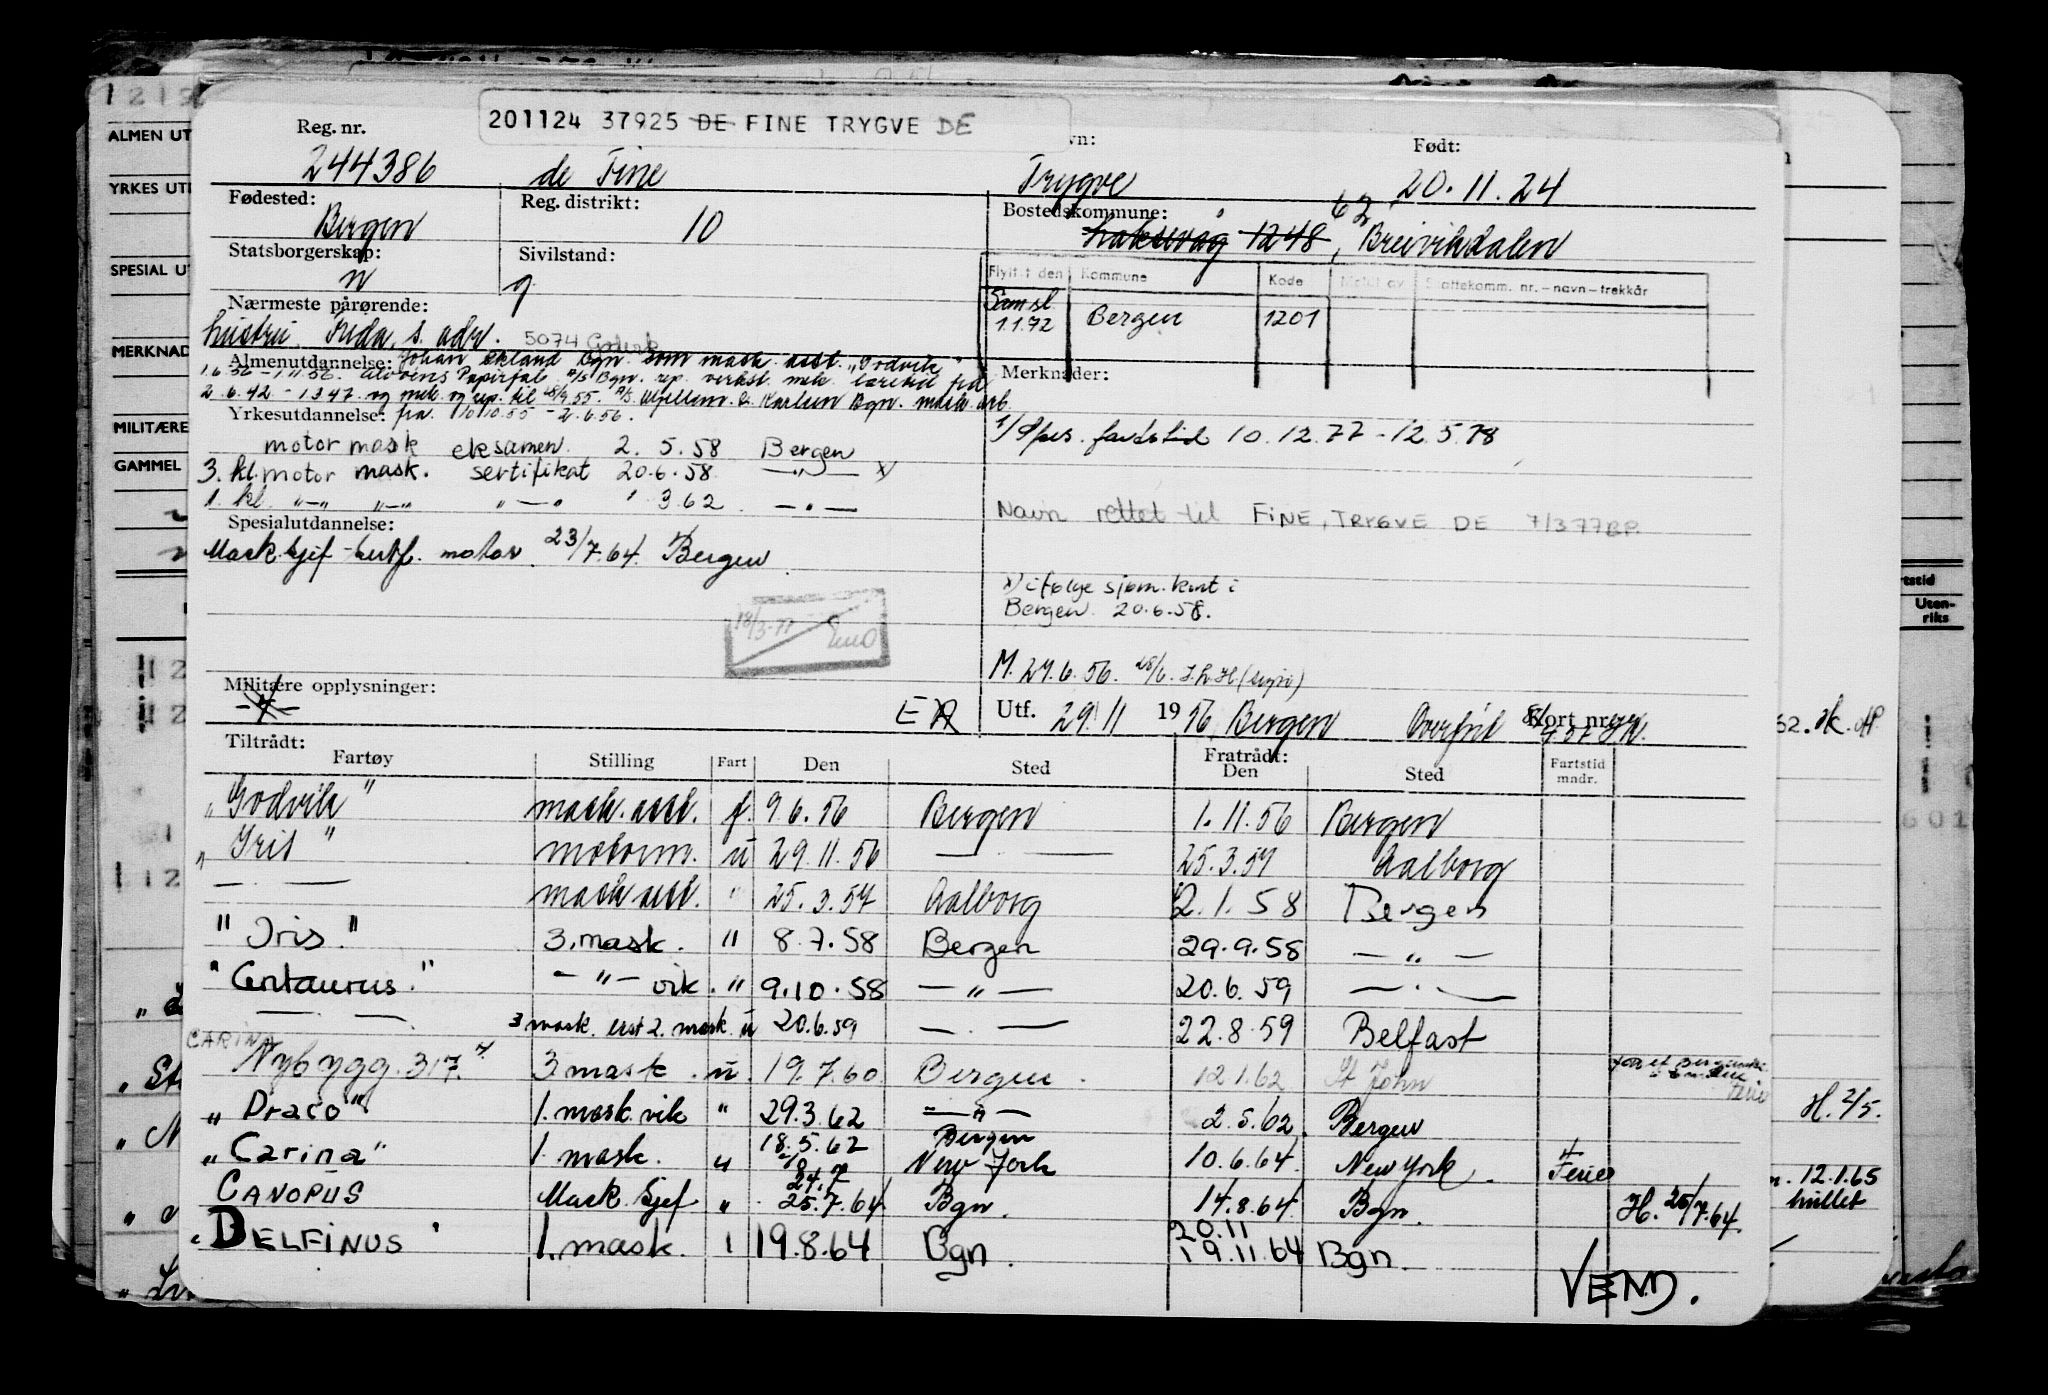 201124 37925 DE FINE TRYGVE DE
Reg. nr. vn: Født:
244386 de Fine Trygve 20.11.24
Fødested: Reg. distrikt: Bostedskommune:
Bergen 10 Laksevåg 1248, 62 Breivikdalen
Statsborgerskap: Sivilstand:
n g
Flyttet den Kommune Kode Meldt av Skattekomm. nr. – navn – trekkår
Samsl. 1.1.72 Bergen 1201
Nærmeste pårørende:
hustru Frida, s. adr. 5074 Godvik
Almenutdannelse: Johan Ekland Bgn. som mask. asst. "Godvik"
1.6.56 - 1.11.56. Alvøens Papirfab. A/S Bgn. rep. verkst. mek. læretid fra
2.6.42 - 1947 og mek. og rep. til 9.55. A/S & Karlsen Bgn. mask. arb.
Yrkesutdannelse: fra 10.55 - 2.6.56.
motor mask eksamen 2.5.58 Bergen
3. kl. motor mask. sertifikat 20.6.58 —"— x)
1. kl. "—" "—" "—" 1.3.62 —"—
Spesialutdannelse:
Mask.sjef-sertf. motor 23/7.64 Bergen
18/3-77
Merknader:
fartstid 10.12.77 - 12.5.78
Navn rettet til FINE, TRYGVE DE 7/3 77 BP.
x) ifølge sjøm.kont i
Bergen 20.6.58.
M. 27.6.56.
Militære opplysninger:
Utf. 29/11 1956, Bergen Overført Kort nr.
Tiltrådt: Fratrådt:
Fartøy Stilling Fart Den Sted Den Sted Fartstid mndr.
"Godvik" mask. asst. f. 9.6.56 Bergen 1.11.56 Bergen
"Iris" motorm. u 29.11.56 — — 25.3.57 Aalborg
— — mask asst. " 25.3.57 Aalborg 2.1.58 Bergen
"Iris" 3. mask. " 8.7.58 Bergen 29.9.58 —"—
"Centaurus" —"— vik. " 9.10.58 —"— 20.6.59 —"—
— — 3 mask. erst 2. mask. u 20.6.59 — — 22.8.59 Belfast
CARINA
Nybygg. 317. 3. mask. u. 19.7.60 Bergen. 12.1.62 St John
"Draco" 1. mask. vik " 29.3.62 —"— 2.5.62. Bergen
"Carina" 1. mask. " 18.5.62 Bergen New York 10.6.64. New York. 4 Ferie
CANOPUS Mask. sjef " 24.7 25.7.64 Bgn. 14.8.64 Bgn. H. 25/7.64.
"DELFINUS" 1. mask. 19.8.64 Bgn. 20.11 19.11.64 Bgn.
VEND.
ALMEN UT
YRKES UT
SPESIAL U
MERKNAD
MILITÆRE
GAMMEL
Uten-
riks
H. 2/5.
12.1.65
hullet
601